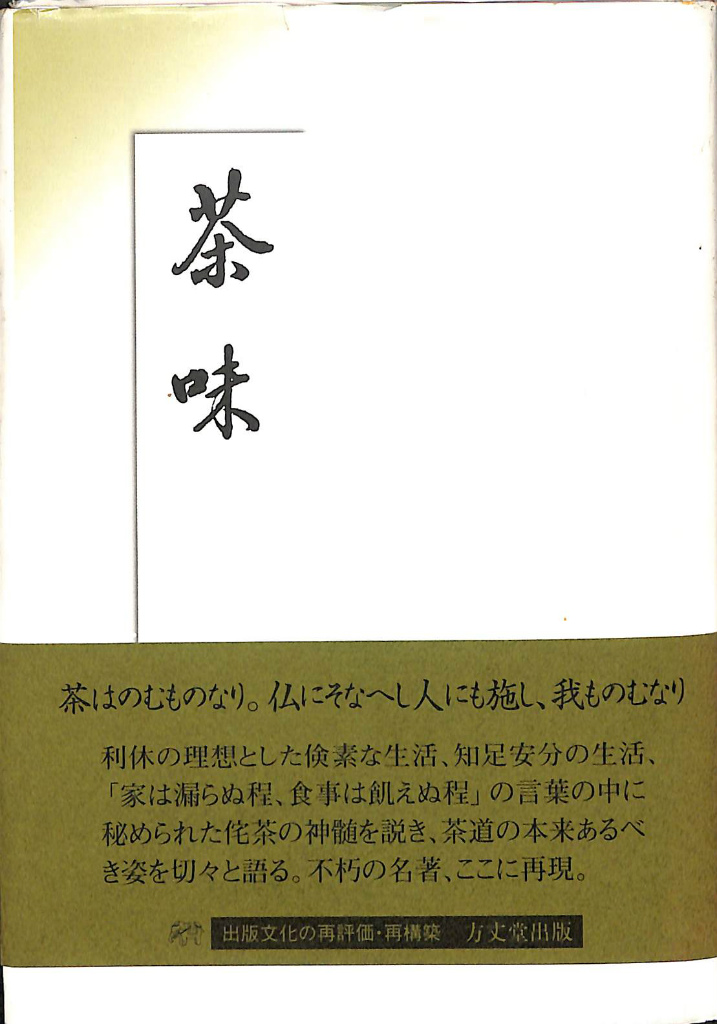 茶味
茶はのむものなり。仏にそなへし人にも施し、我ものむなり
利休の理想とした倹素な生活、知足安分の生活、
「家は漏らぬ程、食事は飢えぬ程」の言葉の中に
秘められた侘茶の神髄を説き、茶道の本来あるべ
き姿を切々と語る。不朽の名著、ここに再現。
出版文化の再評価・再構築　方丈堂出版